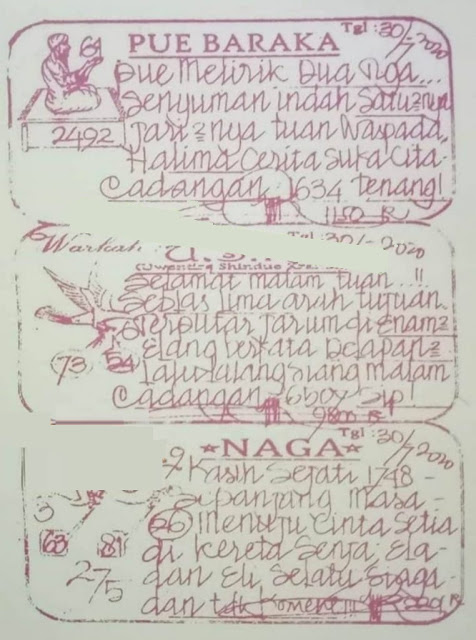 Tgl : 30/7-2020
PUE BARAKA
61
pue Melirik Dua Tiga...
Senyuman indah Satu2nya
2492
Jari2nya tuan Waspada,
Halima Cerita Suka Cita
Cadangan 1634 Tenang!
1150 R
Warkah
Tgl : 30/- 2020
U.S.
(Uwentira Shinduo
Selamat malam tuan..!!
Seblas lima arah tujuan
Terputar Jarum di Enam2
73 54
Elang berkata Delapan2
Lalu lalang siang malam
Cadangan 6
Sip!
9800 R
Tgl : 30/7-2020
★NAGA★
9 Kasih Sejati 1748 -
Sepanjang masa -
3
26 menuju Cinta Setia
63 81
di kereta Senja, Ela-
275
dan Eli Selalu Siaga-
dan tdk Komen!!
R